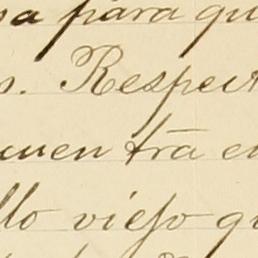 sa para qu
s. Respect
cuentra e
llo viejo qu